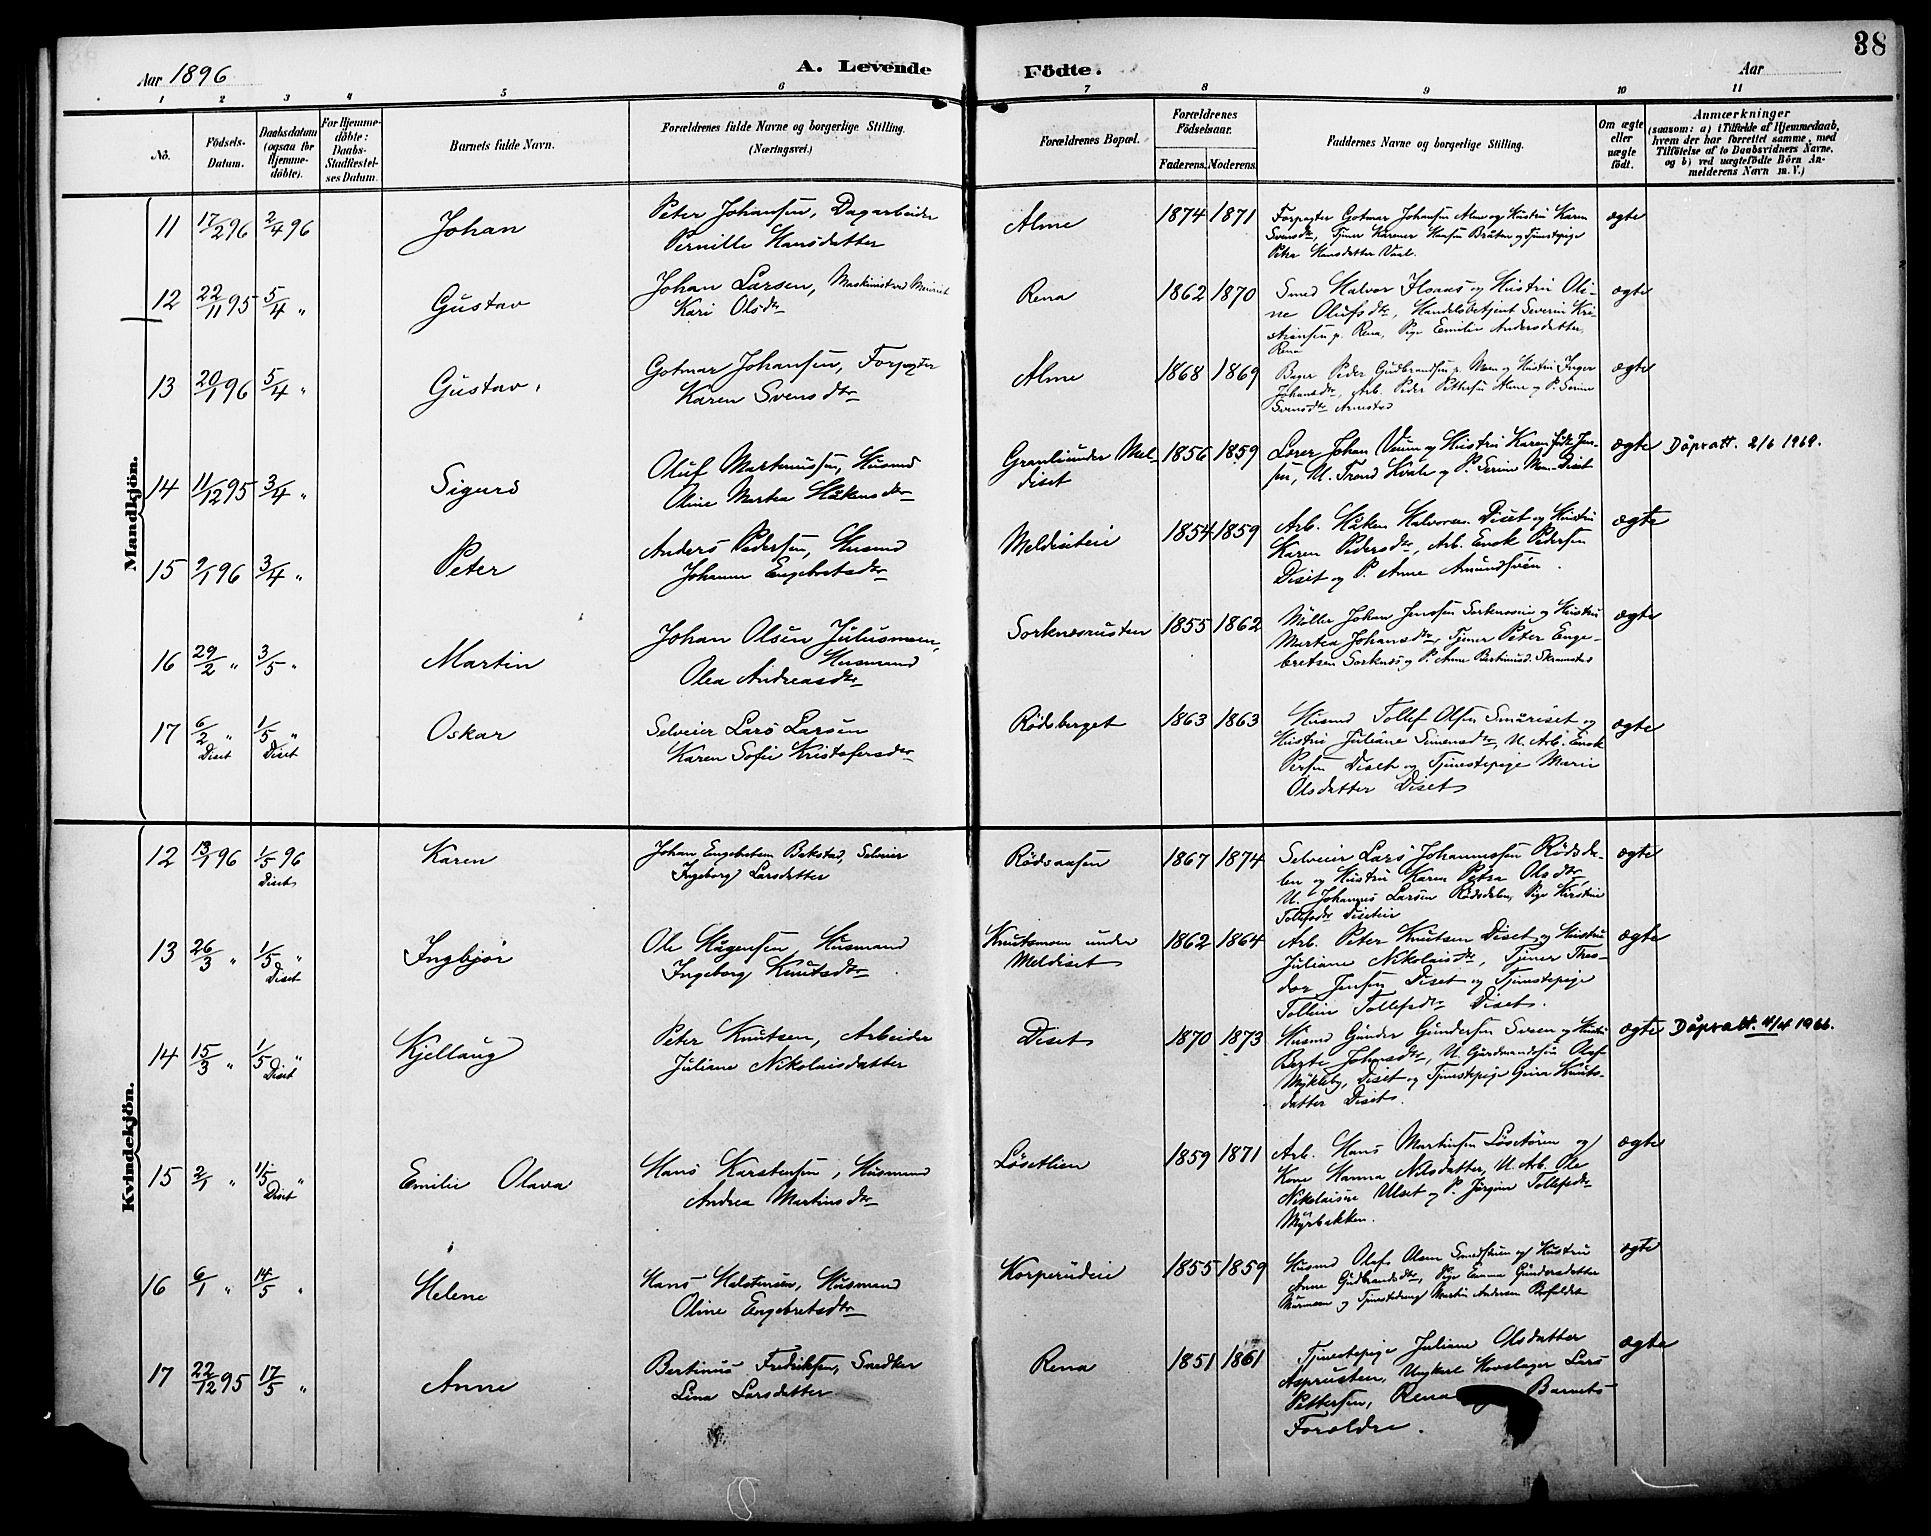 Aar 1896
A. Levende Födte.
Aar
38
1 2 3 4 5 6 7 8 9 10 11
No.
Födsels-Datum.
Daabsdatum (ogsaa for Hjemme-döbte).
For Hjemme-döbte: Daabs-Stadfæstel-ses Datum.
Barnets fulde Navn.
Forældrenes fulde Navne og borgerlige Stilling.
(Næringsvei.)
Forældrenes Bopæl.
Forældrenes Födselsaar.
Faderens. Moderens.
Faddernes Navne og borgerlige Stilling.
Om ægte eller uægte födt.
Anmærkninger
(saasom: a) i Tilfælde af Hjemmedaab,
hvem der har forrettet samme, med
Tilföielse af to Daabsvidners Navne,
og b) ved uægtefödte Börn An-
melderens Navn m. V.)
Mandkjön.
11 17/2 96 2/4 96 Johan
Peter Johansen, Dagarbeider
Pernille Hansdatter
Alme 1874 1871
Forpagter Gotmar Johansen Alme og Hustru Karen
Svensdtr, Tjener Karener Hansen Bråten og Tjenestepige
Petra Hansdatter
ægte
12 22/11 95 5/4 " Gustav
Johan Larsen, Maskinist
Kari Olsdtr
Rena 1862 1870
Smed Halvor Hsaas og Hustru Oli-
ne Olufsdtr, Handelsbetjent Severin Kri-
stiansen p. Rena, Pige Emilie Andersdatter
Rena
ægte
13 20/1 96 5/4 " Gustav
Gotmar Johansen, Forpagter
Karen Svensdtr
Alme 1868 1869
Bager Peder Gudbrandsen p. Moen og Hustru Inger
Johansdtr, Arb. Peder Pettersen Alme og P. Serine
Svensdtr
ægte
14 11/12 95 3/4 " Sigurd
Oluf Martinussen, Husmd
Oline Martea Håkensdtr
Granli under Mel-
diset
1856 1859
Lærer Johan Veum og Hustru Karen født Jen-
sen, U. Trond Kvale og P. Serine Moen Diset
ægte Dåpsatt. 2/6 1969.
15 2/1 96 3/4 " Peter
Anders Pedersen, Husmd
Johanne Engebretsdtr
Meldiseteie 1854 1859
Arb. Håken Halvorsen Diset og Hustru
Karen Pedersdtr, Arb. Enok Pedersen
Diset og P. Anne Amundsveen.
ægte
16 29/2 " 3/5 " Martin
Johan Olsen Julusmoen,
Husmand
Olea Andreasdtr
Sorknesrusten 1855 1862
Møller Johan Jenssen Sorkneseie og Hustru
Martea Johansdtr, Tjener Peter Enge-
bretsen Sorknes og P. Anne
ægte
17 6/2 " Diset 1/5 " Diset Oskar
Selveier Lars Larsen
Karen Sofie Kristofersdtr
Rødsberget 1863 1863
Husmd Tollef Olsen og
Hustru Juliane Simensdtr, U. Arb. Enok
Persen Diset og Tjenestepige Marie
Olsdatter Diset
ægte
Kvindekjön.
12 13/1 96 1/5 96 Diset Karen
Johan Engebretsen Bakstad, Selveier
Ingeborg Larsdatter
Rødsaasen 1867 1874
Selveier Lars Johannessen Rødsda-
len og Hustru Karen Petra Olsdtr,
U. Johannes Larsen Rødsdalen, Pige Kirstine
Tollefsdtr Diseteie
ægte
13 26/3 " 1/5 " Diset Ingbjør
Ole Hågensen, Husmand
Ingeborg Knutsdtr
Knutsmoen under
Meldiset
1862 1864
Arb. Peter Knutsen Diset og Hustru
Juliane Nikolaisdtr, Tjener Theo-
dor Jensen Diset og Tjenestepige
Tolline Tollefsdtr Diset.
ægte
14 15/3 " 1/5 " Diset Kjellaug
Peter Knutsen, Arbeider
Juliane Nikolaisdatter
Diset 1870 1873
Husmd Gunder Gundersen Sveen og Hustru
Berte Johansdtr, U. Gårdmandssøn Olaf
Mykleby, Diset og Tjenestepige Gura Knuts-
datter Diset.
ægte Dåpsatt. 4/4 1966.
15 2/1 " 1/5 " Diset Emilie Olava
Hans Karstensen, Husmand
Andrea Martinsdtr
Løsetlien 1859 1871
Arb. Hans Martinsen Løsetøren og
Kone Hanna Nilsdatter, U. Arb. Ole
Nikolaisen Ulset og P. Jørgine Tollefsdtr
Myrbakken.
ægte
16 6/1 " 14/5 " Helene
Hans Halstensen, Husmand
Oline Engebretsdtr
Korperudeie 1855 1859
Husmd Olaf Olsen og Hustru
Anne Gudbrandsdtr, Pige Emma Gundersdatter
og Tjenestedreng Martin Andersen
ægte
17 22/12 95 17/5 " Anne
Bertinus Fredriksen, Snedker
Lina Larsdatter
Rena 1851 1861
Tjenestepige Juliane Olsdatter
Asprusten, Ungkarl Hovslager Lars
Pettersen, Rena Barnets
Forældre.
ægte